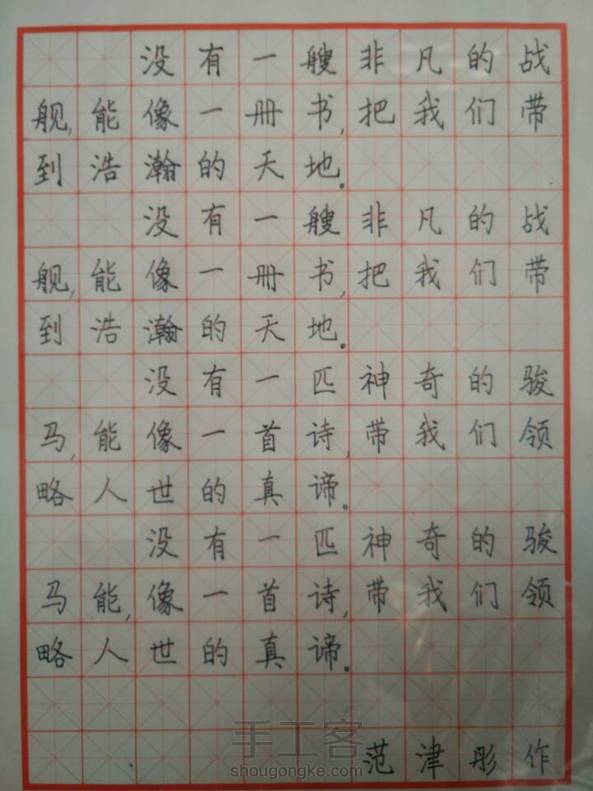 没有一艘非凡的战
舰,能像一册书,把我们带
到浩瀚的天地。
没有一艘非凡的战
舰,能像一册书,把我们带
到浩瀚的天地。
没有一匹神奇的骏
马,能像一首诗,带我们领
略人世的真谛。
没有一匹神奇的骏
马能,像一首诗,带我们领
略人世的真谛。
手工客
范津彤作
shougongke.com